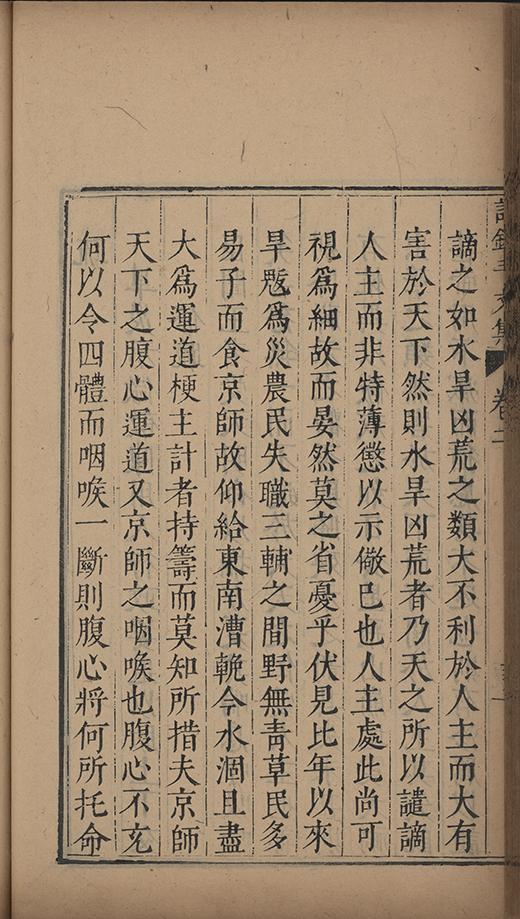 謫之如水旱凶荒之類大不利於人主而大有
害於天下然則水旱凶荒者乃天之所以譴謫
人主而非特薄懲以示儆已也人主處此尚可
視爲細故而晏然莫之省憂乎伏見比年以來
旱魃爲災農民失職三輔之間野無青草民多
易子而食京師故仰給東南漕輓今水涸且盡
大爲運道梗主計者持籌而莫知所措夫京師
天下之腹心運道又京師之咽喉也腹心不充
何以令四體而咽喉一斷則腹心將何所托命